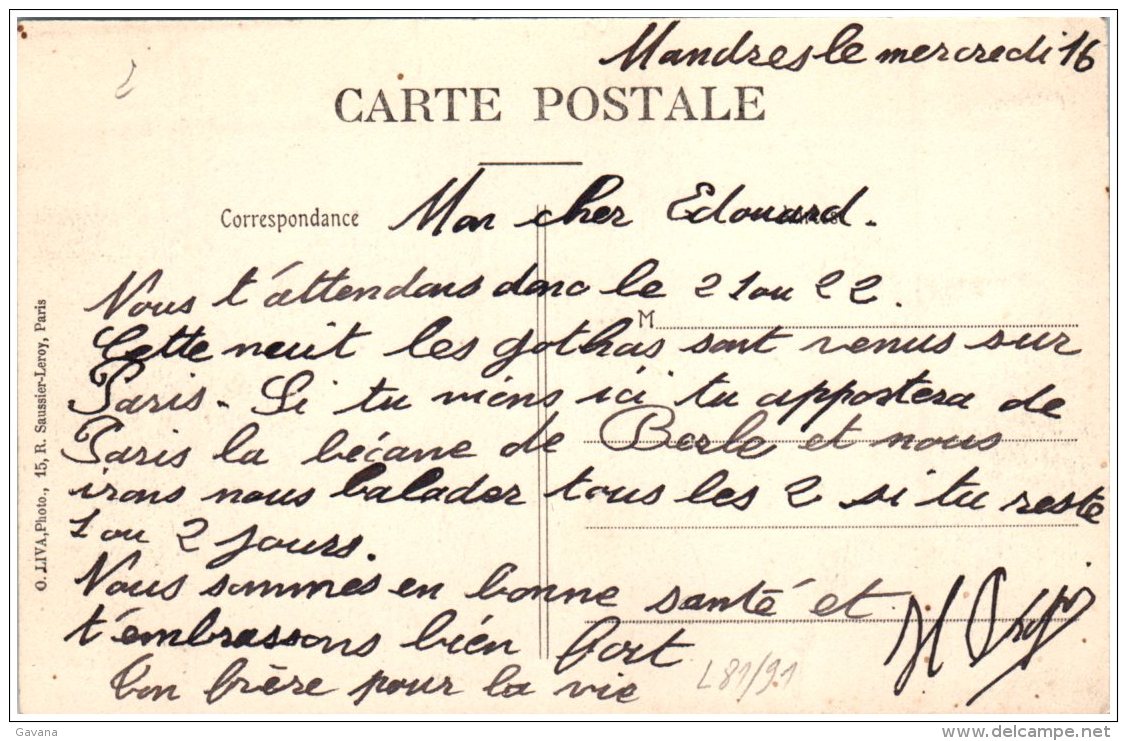 Mandres le mercredi 16
CARTE POSTALE
Correspondance
Mon cher Edouard.
Nous t'attendons donc le 21 ou 22.
M
Cette nuit les gothas sont venus sur
Paris - Si tu viens ici tu apportera de
Paris la bécane de Berle et nous
irons nous balader tous les 2 si tu reste
1 ou 2 jours.
Nous sommes en bonne santé et
t'embrassons bien fort
Ton frère pour la vie
L81/91
O. LIVA, Photo., 15, R. Saussier-Leroy, Paris
Gavana
www.delcampe.net